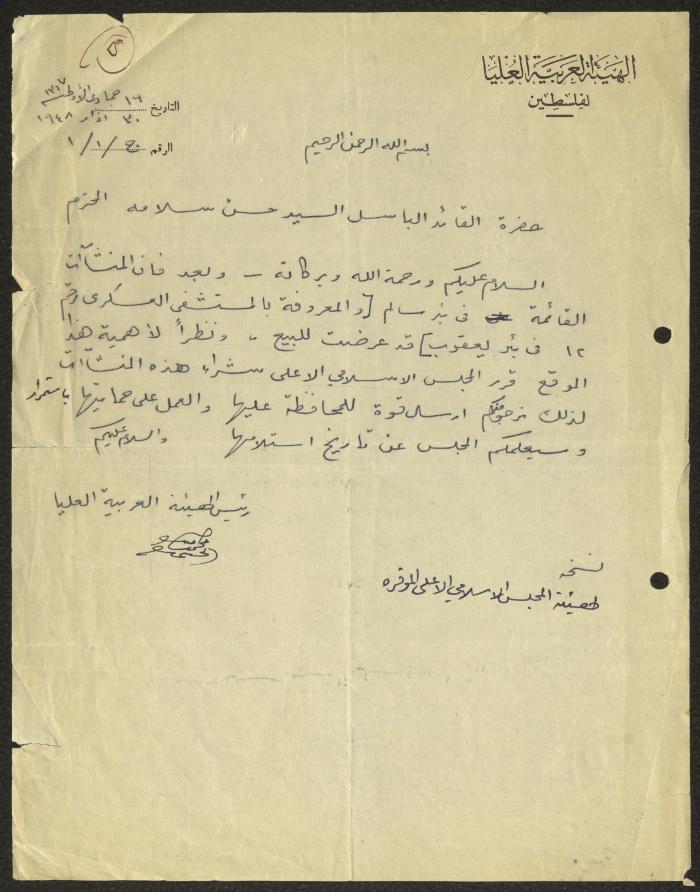 الهيئة العربية العليا
لفلسطين
التاريخ ١٦ جمادى الأولى
٣٠ اذار ١٩٤٨
الرقم /١/١
بسم الله الرحمن الرحيم
حضرة القائد الباسل السيد حسن سلامه المحترم
السلام عليكم ورحمة الله وبركاته – وبعد فان المنشآت
القائمة في بئر سالم [والمعروفة بالمستشفى العسكري رقم
١٢ في بئر يعقوب] قد عرضت للبيع ، ونظراً لأهمية هذا
الموقع قرر المجلس الاسلامي الاعلى شراء هذه المنشآت
لذلك نرجو منكم ارسال قوة للمحافظة عليها والعمل على حمايتها باستمرار
وسيعلمكم المجلس عن تاريخ استلامها والسلام عليكم
رئيس الهيئة العربية العليا
نسخة
لهيئة المجلس الاسلامي الاعلى الموقره